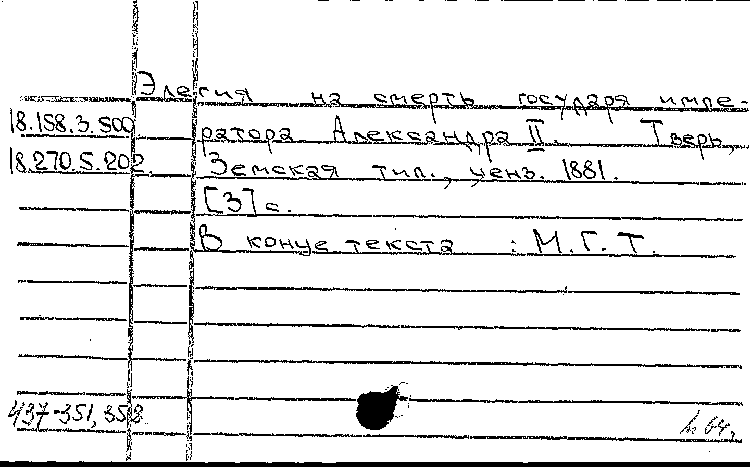 Элегия на смерть государя импе-
18.158.3.500 ратора Александра II. Тверь,
18.270.5.202. Земская тип., ценз. 1881.
[3] с.
В конце текста : М.Г.Т.
437-351,358